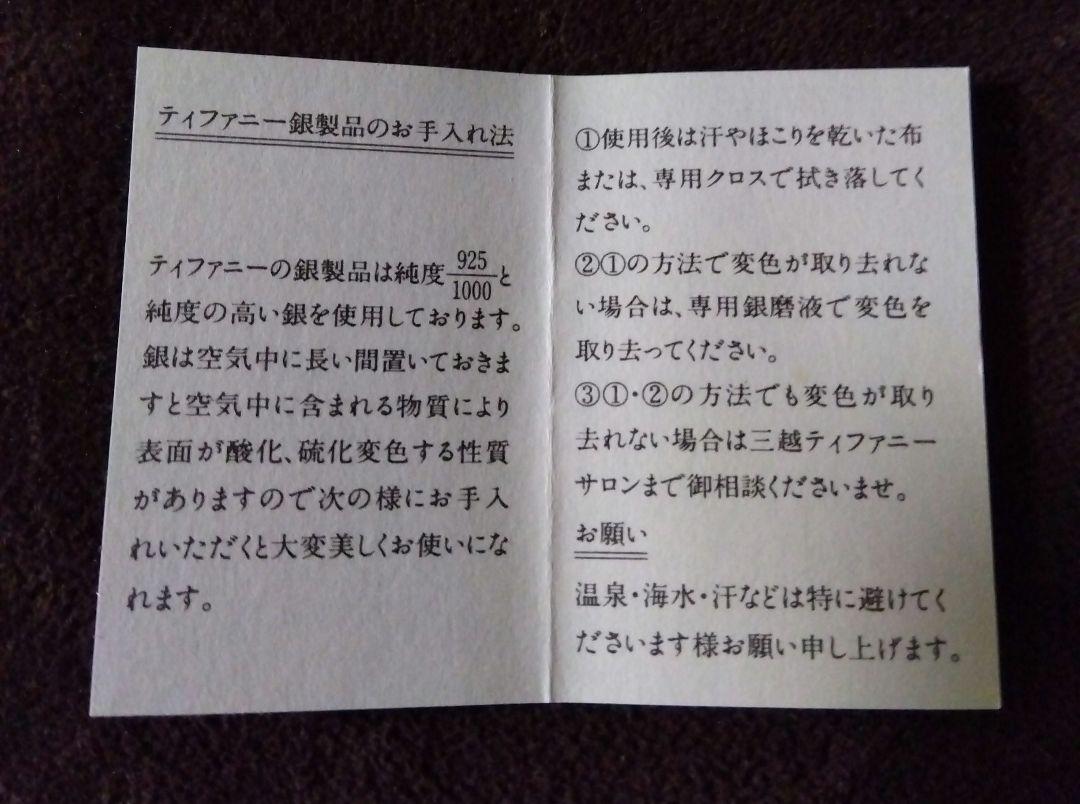 ティファニー銀製品のお手入れ法
ティファニーの銀製品は純度925/1000と
純度の高い銀を使用しております。
銀は空気中に長い間置いておきま
すと空気中に含まれる物質により
表面が酸化、硫化変色する性質
がありますので次の様にお手入
れいただくと大変美しくお使いにな
れます。
①使用後は汗やほこりを乾いた布
または、専用クロスで拭き落してく
ださい。
②①の方法で変色が取り去れな
い場合は、専用銀磨液で変色を
取り去ってください。
③①・②の方法でも変色が取り
去れない場合は三越ティファニー
サロンまで御相談くださいませ。
お願い
温泉・海水・汗などは特に避けてく
ださいます様お願い申し上げます。